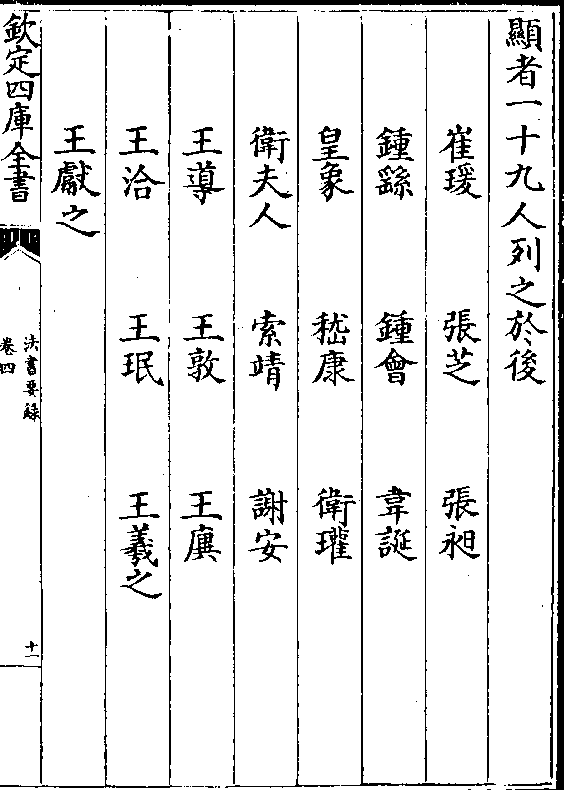 顯者一十九人列之於後
崔瑗 張芝 張昶
鍾繇 鍾會 韋誕
皇象 嵇康 衛瓘
衛夫人 索靖 謝安
王導 王敦 王廙
王洽 王珉 王羲之
王獻之
欽定四庫全書
法書要錄
卷四
十一